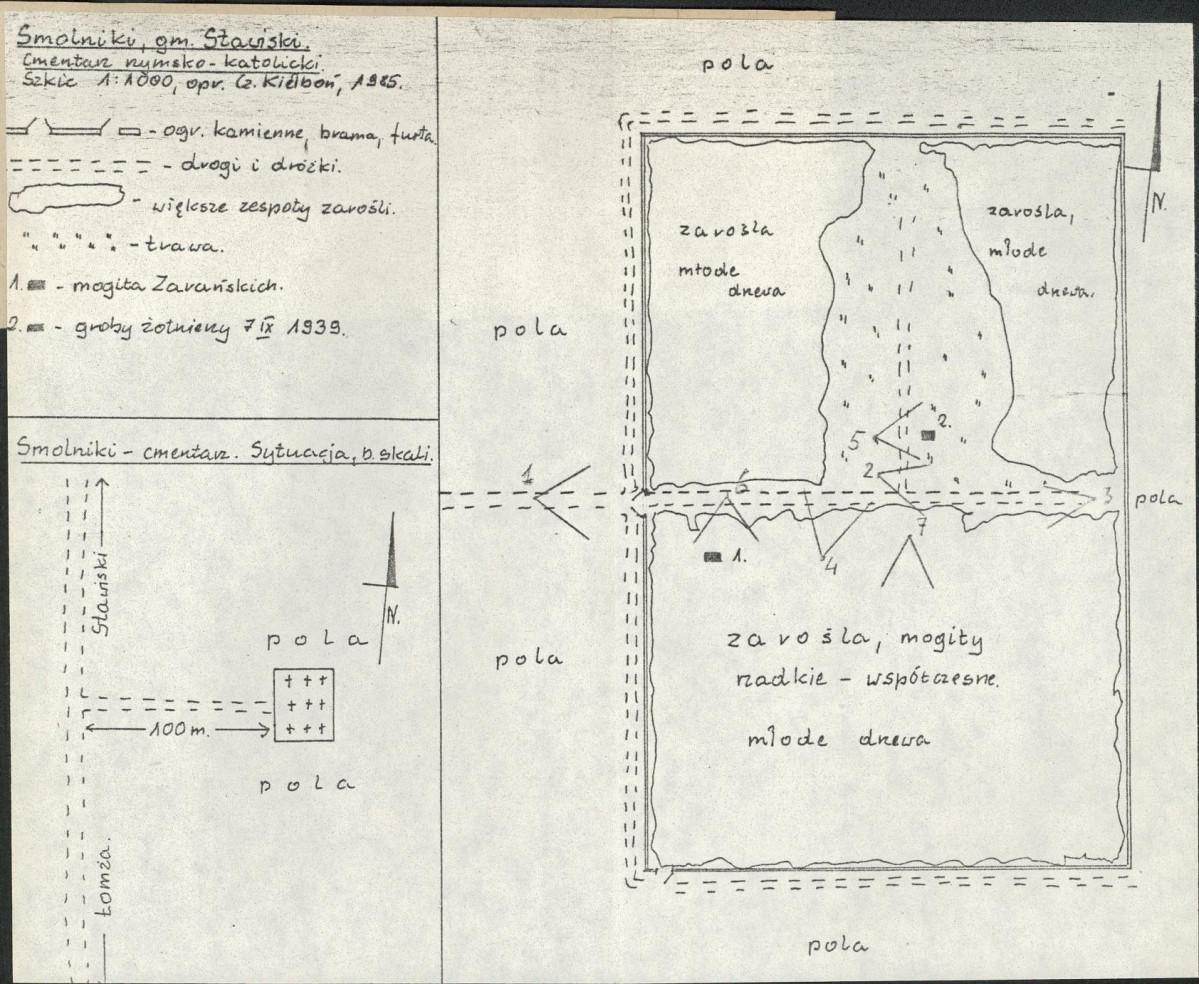 Smolniki, gm. Stawiski.
Cmentarz rzymsko-katolicki.
Szkic 1:1000, opr. Cz. Kiełboń, 1985.
- ogr. kamienne, brama, furta.
- drogi i dróżki.
- większe zespoły zarośli.
- trawa.
1. - mogiła Zarańskich.
2. - groby żołnierzy 7 IX 1939.
Smolniki - cmentarz. Sytuacja, b. skali.
Stawiski
N.
pola
100 m.
pola
Łomża.
pola
N.
zarośla
młode
drzewa
zarośla,
młode
drzewa.
pola
2.
5
2
1
6
3
pola
7
1.
4
zarośla, mogiły
rzadkie - współczesne.
młode drzewa
pola
pola